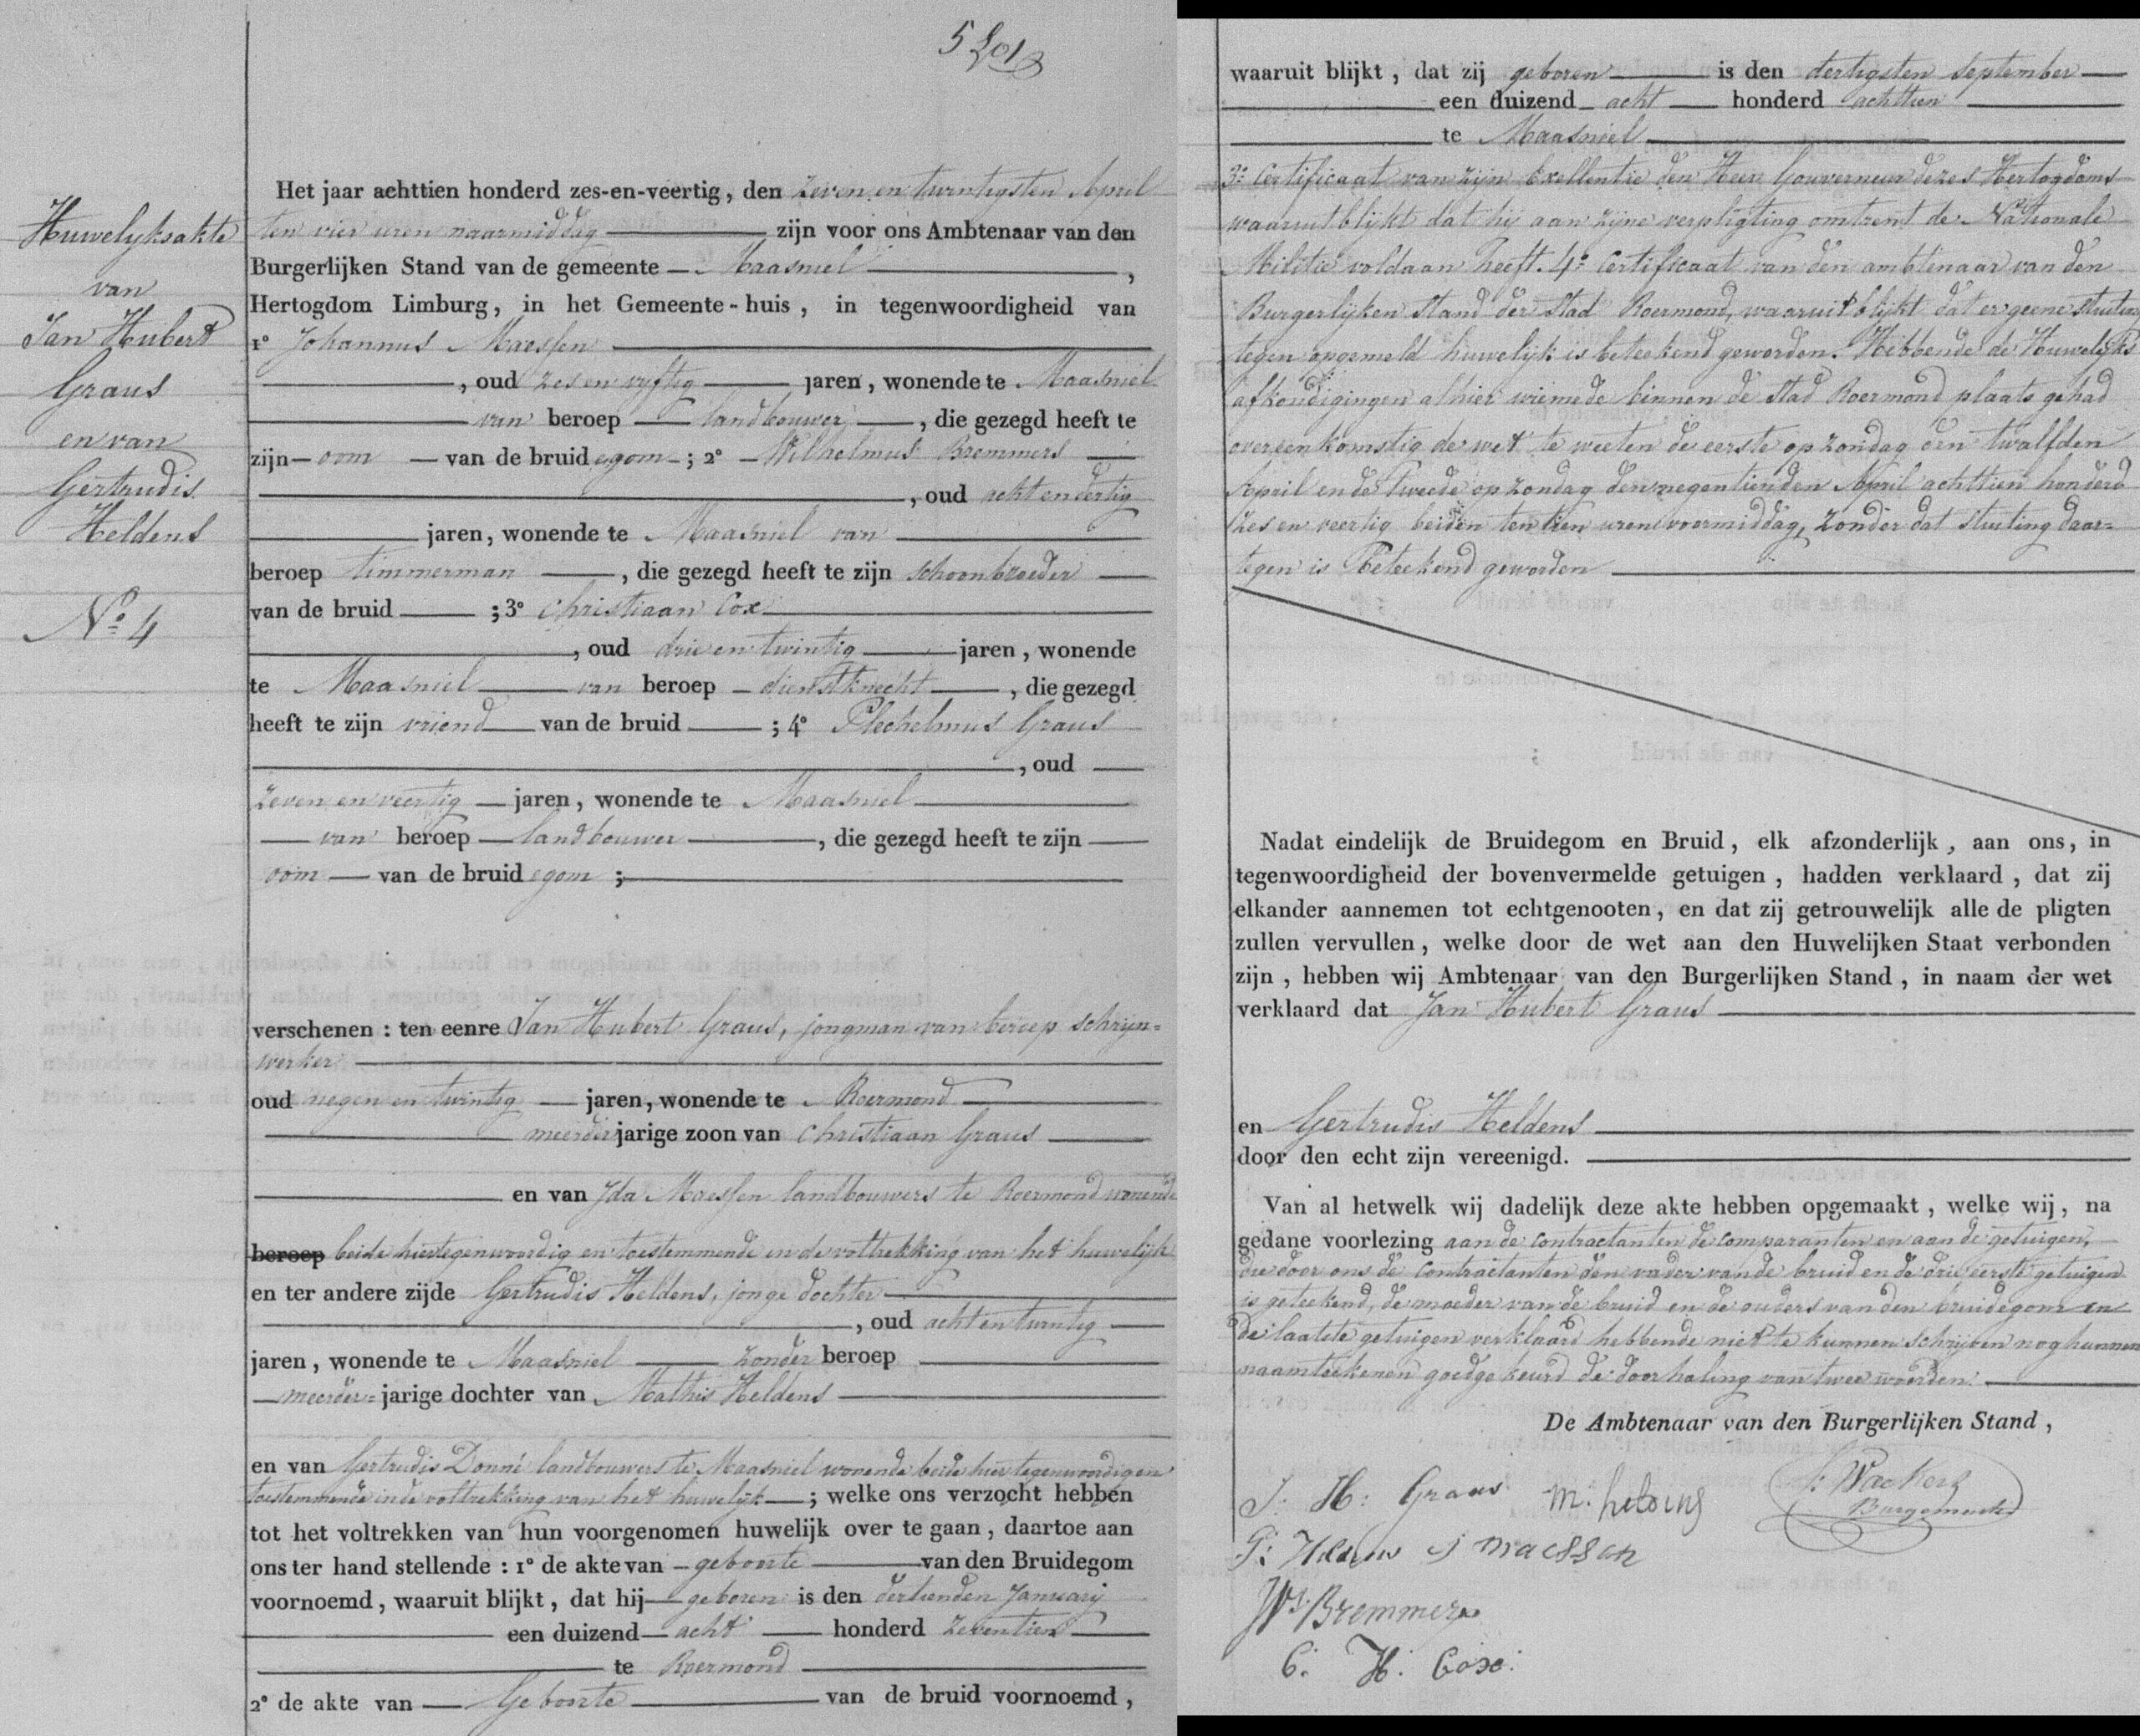 5
Huwelyksakte
van
Jan Hubert
Graus
en van
Gertrudis
Heldens
No 4
Het jaar achttien honderd zes-en-veertig, den zeven en twintigsten April
ten vier uren naarmiddag zijn voor ons Ambtenaar van den
Burgerlijken Stand van de gemeente Maasniel,
Hertogdom Limburg, in het Gemeente-huis, in tegenwoordigheid van
1° Johannus Maessen
, oud zes en vyftig jaren, wonende te Maasniel
van beroep landbouwer, die gezegd heeft te
zijn oom van de bruidegom; 2° Wilhelmus Bremmers
, oud acht en dertig
jaren, wonende te Maasniel van
beroep timmerman, die gezegd heeft te zijn schoonbroeder
van de bruid; 3° Christiaan Cox
, oud drie en twintig jaren, wonende
te Maasniel van beroep dienstknecht, die gezegd
heeft te zijn vriend van de bruid; 4° Plechelmus Graus
, oud
zeven en veertig jaren, wonende te Maasniel
van beroep landbouwer, die gezegd heeft te zijn
oom van de bruidegom;
verschenen: ten eenre Jan Hubert Graus, jongman van beroep schryn=
werker
oud negen en twintig jaren, wonende te Roermond
meerderjarige zoon van Christiaan Graus
en van Ida Maessen landbouwers te Roermond wonende
beroep beide hiertegenwoordig en toestemmende in de voltrekking van het huwelijk
en ter andere zijde Gertrudis Heldens, jonge dochter
, oud acht en twintig
jaren, wonende te Maasniel zonder beroep
meerder=jarige dochter van Mathis Heldens
en van Gertrudis Donné landbouwers te Maasniel wonende beide hiertegenwoordig en
toestemmende in de voltrekking van het huwelijk; welke ons verzocht hebben
tot het voltrekken van hun voorgenomen huwelijk over te gaan, daartoe aan
ons ter hand stellende: 1° de akte van geboorte van den Bruidegom
voornoemd, waaruit blijkt, dat hij geboren is den dertienden January
een duizend acht honderd zeventien
te Roermond
2° de akte van Geboorte van de bruid voornoemd,
waaruit blijkt, dat zij geboren is den dertigsten september
een duizend acht honderd achttien
te Maasniel
3° Certificaat van zijn Excellentie den Heer Gouverneur dezes Hertogdoms
waaruit blijkt dat hij aan zijne verpligting omtrent de Nationale
Militie voldaan heeft. 4° Certificaat van den ambtenaar van den
Burgerlijken Stand der stad Roermond, waaruit blijkt dat er geene stuiting
tegen opgemeld huwelijk is beteekend geworden. Hebbende de Huwelijks
afkondigingen alhier mede binnen de stad Roermond plaats gehad
overeenkomstig de wet te weeten de eerste op zondag den twalfden
April en de tweede op zondag den negentienden April achttien honderd
zes en veertig beiden ten tien uren voormiddag, zonder dat stuiting daar=
tegen is beteekend geworden
Nadat eindelijk de Bruidegom en Bruid, elk afzonderlijk, aan ons, in
tegenwoordigheid der bovenvermelde getuigen, hadden verklaard, dat zij
elkander aannemen tot echtgenooten, en dat zij getrouwelijk alle de pligten
zullen vervullen, welke door de wet aan den Huwelijken Staat verbonden
zijn, hebben wij Ambtenaar van den Burgerlijken Stand, in naam der wet
verklaard dat Jan Hubert Graus
en Gertrudis Heldens
door den echt zijn vereenigd.
Van al hetwelk wij dadelijk deze akte hebben opgemaakt, welke wij, na
gedane voorlezing aan de contractanten de comparanten en aan de getuigen,
die door ons de contractanten den vader van de bruid en de drie eerste getuigen
is geteekend, de moeder van de bruid en de ouders van den bruidegom en
de laatste getuigen verklaard hebbende niet te kunnen schrijven nog hunnen
naamteekenen goedgekeurd de doorhaling van twee woorden.
De Ambtenaar van den Burgerlijken Stand,
J: H: Graus M. heldens Wackers
Burgemeester
G: Heldens J Maessen
W Bremmers
C. H. Cox.